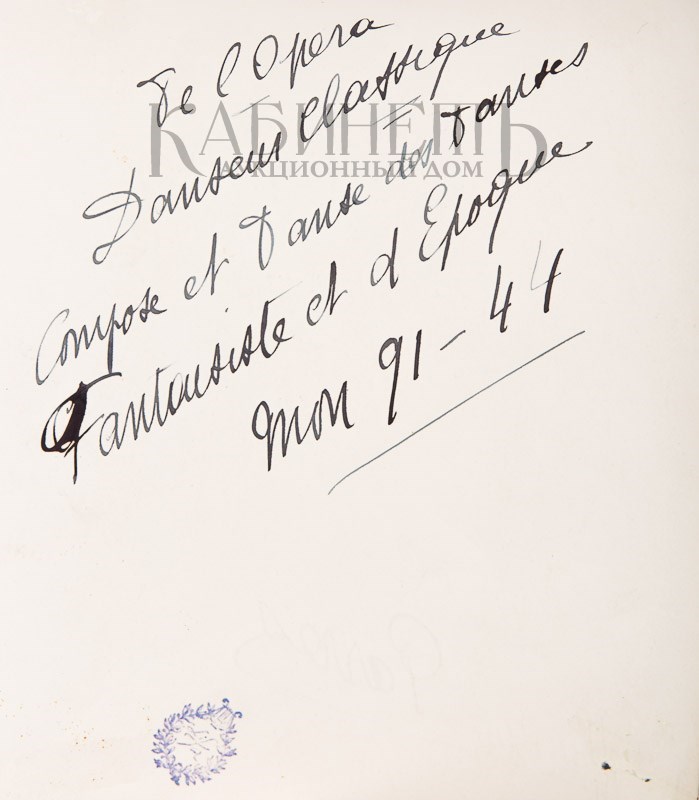 De l'Opera
Danseur Classique
КАБИНЕТЪ
АУКЦИОННЫЙ ДОМ
Compose et Danse des Danses
Fantaisiste et d Epoque
Mon 91-44